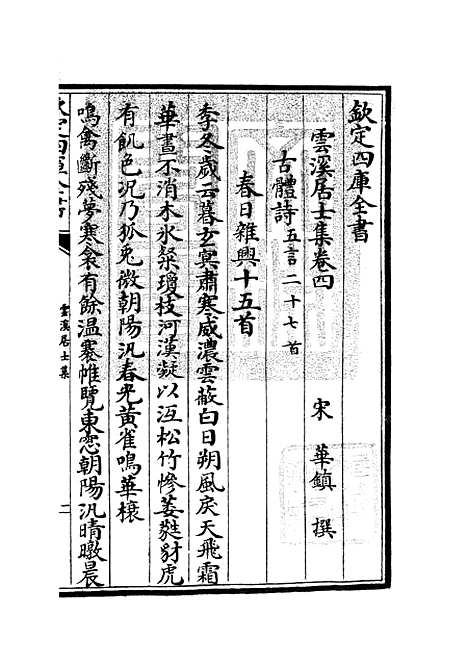 欽定四庫全書
雲溪居士集卷四
宋 華鎮 撰
古體詩五言二十七首
春日雜興十五首
季冬歲云暮玄冥肅寒威濃雲蔽白日朔風戾天飛霜
華晝不消木氷粲瓊枝河漢凝以沍松竹慘萎蕤豺虎
有飢色况乃狐兎微朝陽汎春光黄雀鳴華榱
鳴禽斷殘夢寒衾有餘温褰帷覽東窓朝陽汎晴暾晨
欽定四庫全書
雲溪居士集